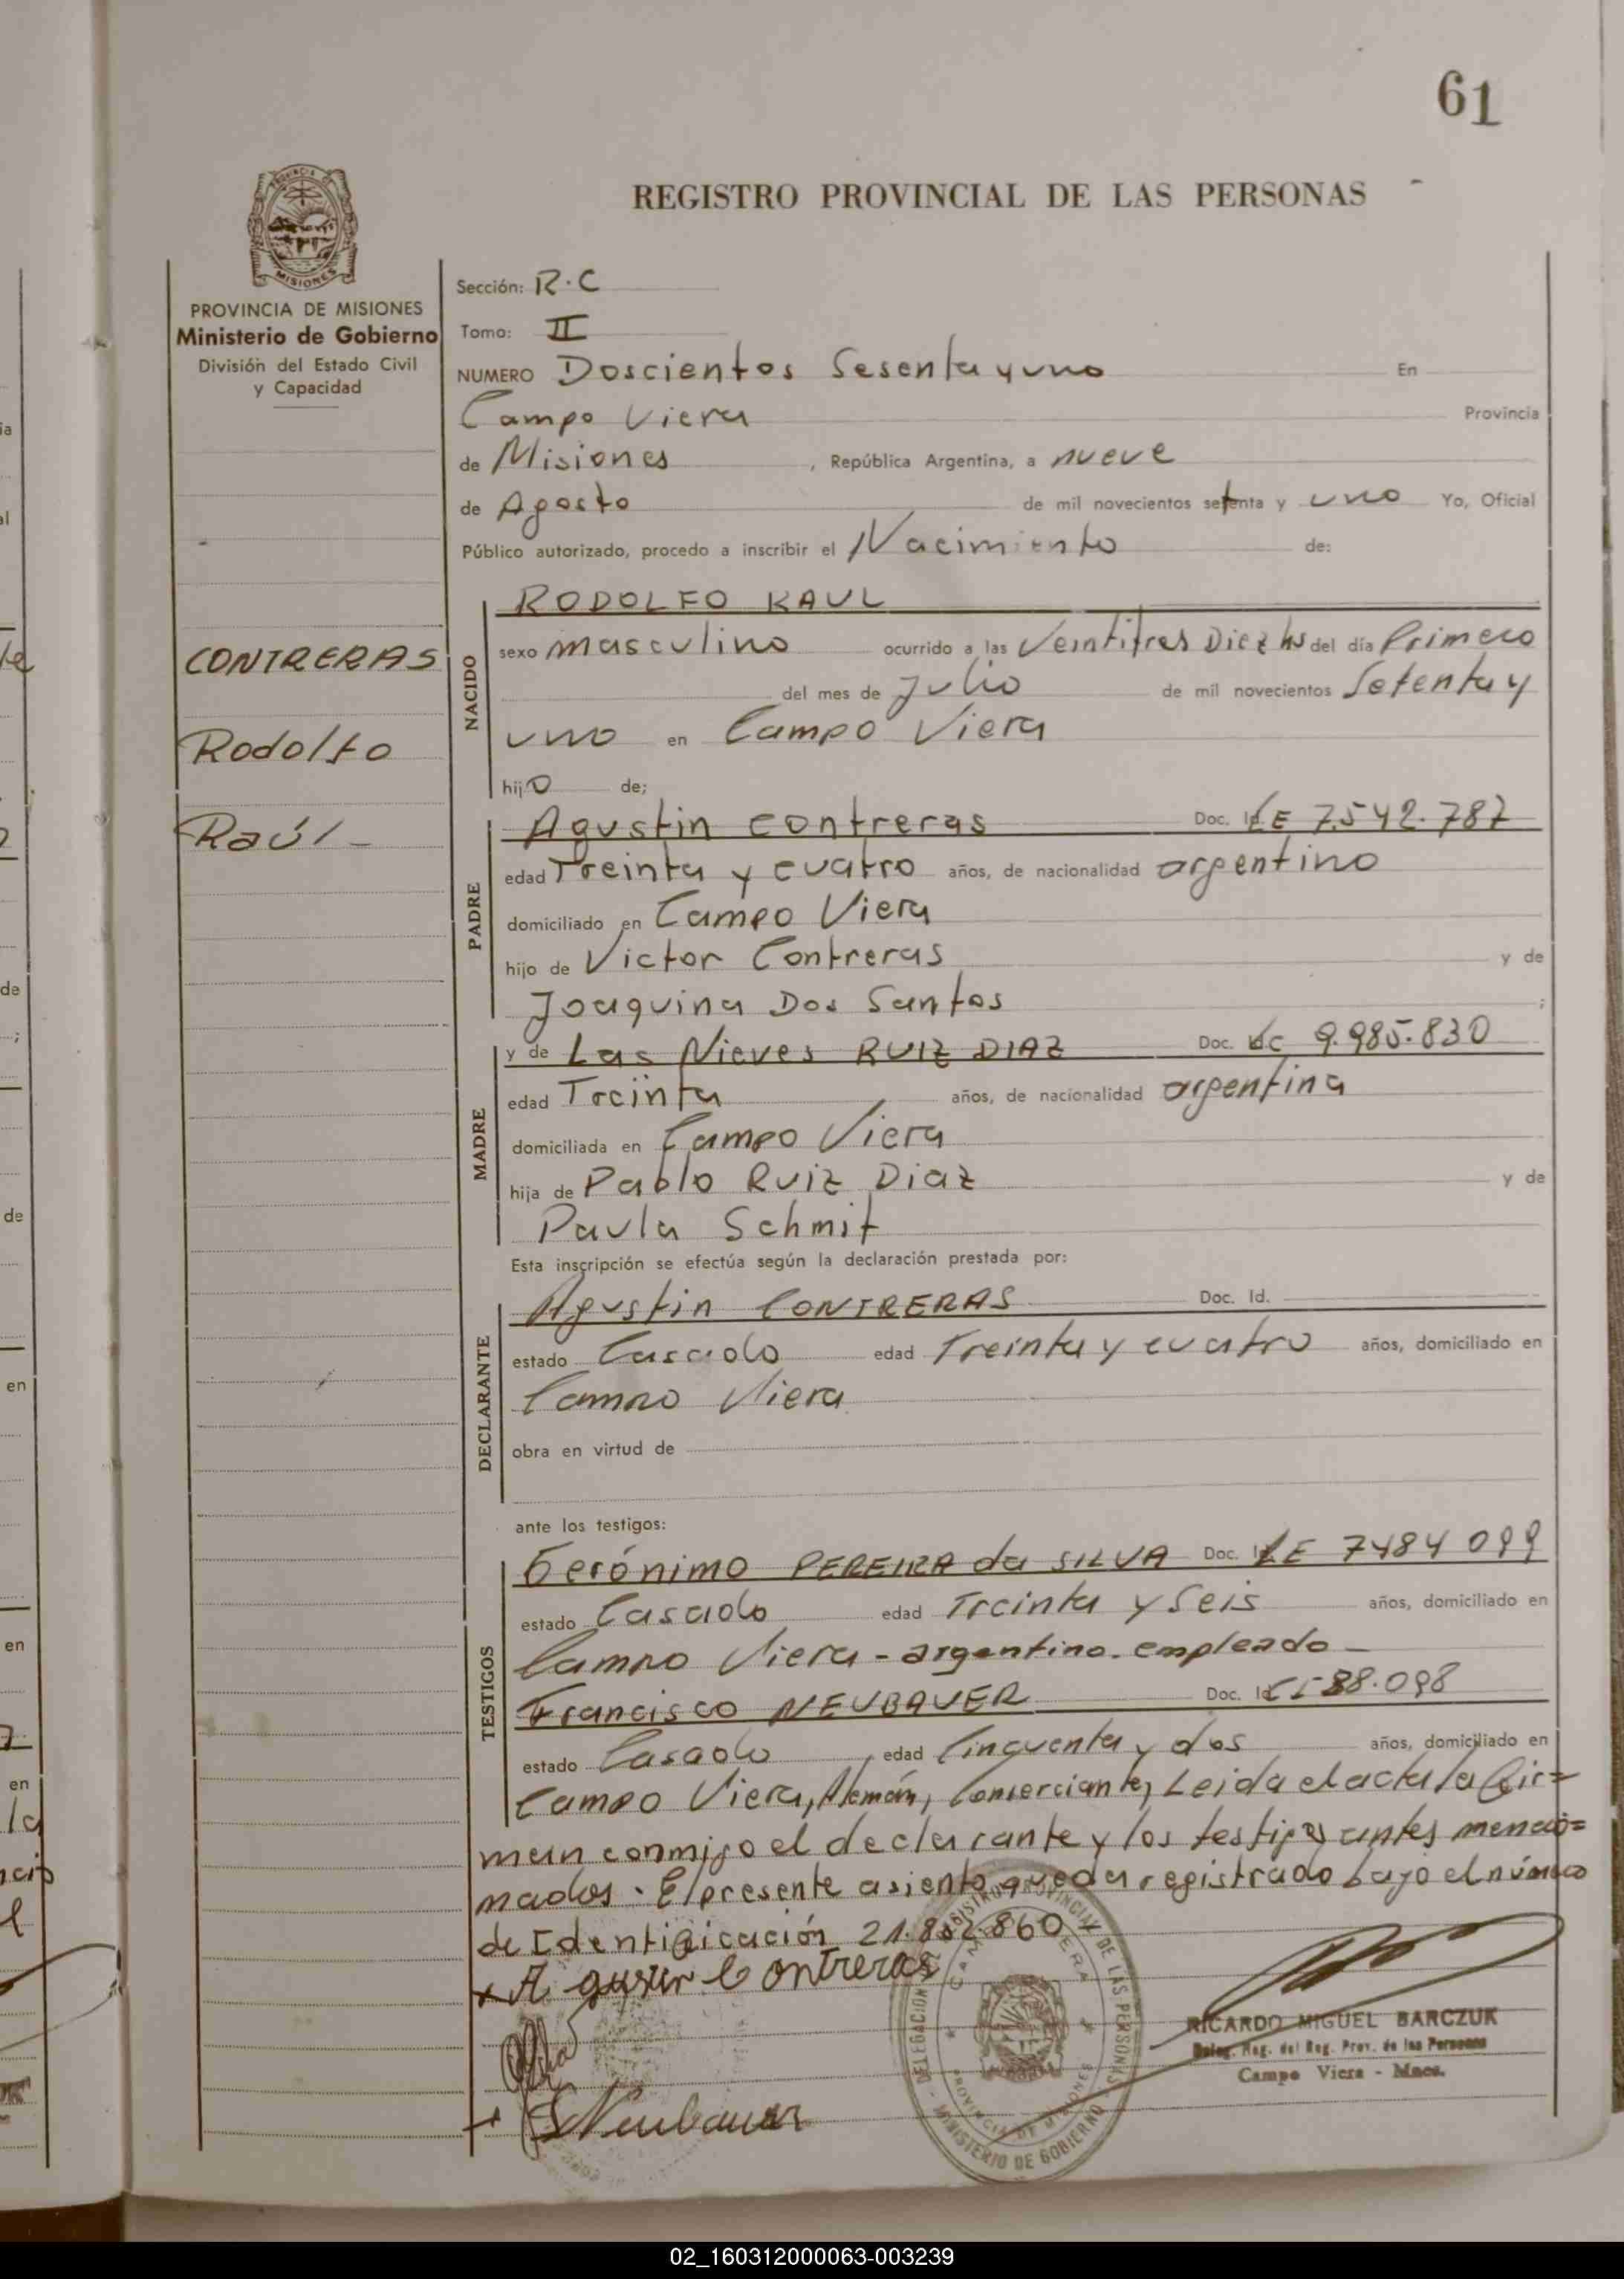 61
REGISTRO PROVINCIAL DE LAS PERSONAS
PROVINCIA DE MISIONES
Ministerio de Gobierno
División del Estado Civil
y Capacidad
CONTRERAS
Rodolfo
Raúl -
Sección: R.C
Tomo: II
NUMERO Doscientos Sesenta y uno En
Campo Viera Provincia
de Misiones , República Argentina, a nueve
de Agosto de mil novecientos setenta y uno Yo, Oficial
Público autorizado, procedo a inscribir el Nacimiento de:
NACIDO
RODOLFO RAUL
sexo masculino ocurrido a las Veintitres Diez hs del día Primero
del mes de Julio de mil novecientos Setenta y
uno en Campo Viera
hijo de;
PADRE
Agustin Contreras Doc. LE 7.542.787
edad Treinta y cuatro años, de nacionalidad argentino
domiciliado en Campo Viera
hijo de Victor Contreras y de
Joaquina Dos Santos ;
MADRE
y de Las Nieves RUIZ DIAZ Doc. LC 9.985.830
edad Treinta años, de nacionalidad argentina
domiciliada en Campo Viera
hija de Pablo Ruiz Diaz y de
Paula Schmit
Esta inscripción se efectúa según la declaración prestada por:
DECLARANTE
Agustin CONTRERAS Doc. Id.
estado Casado edad Treinta y cuatro años, domiciliado en
Campo Viera
obra en virtud de
ante los testigos:
TESTIGOS
Gerónimo PEREIRA da SILVA Doc. LE 7484 099
estado Casado edad Treinta y Seis años, domiciliado en
Campo Viera - argentino. empleado -
Francisco NEUBAUER Doc. 88.098
estado Casado edad Cincuenta y dos años, domiciliado en
Campo Viera, Alemán, Comerciante, Leida el acta la fir=
man conmigo el declarante y los testigos antes mencio=
nados. El presente asiento queda registrado bajo el número
de Identificación 21.802.860
x Agustin Contreras
Neubauer
DELEGACION REGISTRO PROVINCIAL DE LAS PERSONAS
CAMPO VIERA
PROVINCIA DE MISIONES
MINISTERIO DE GOBIERNO
RICARDO MIGUEL BARCZUK
Deleg. Reg. del Reg. Prov. de las Personas
Campo Viera - Mnes.
02_160312000063-003239